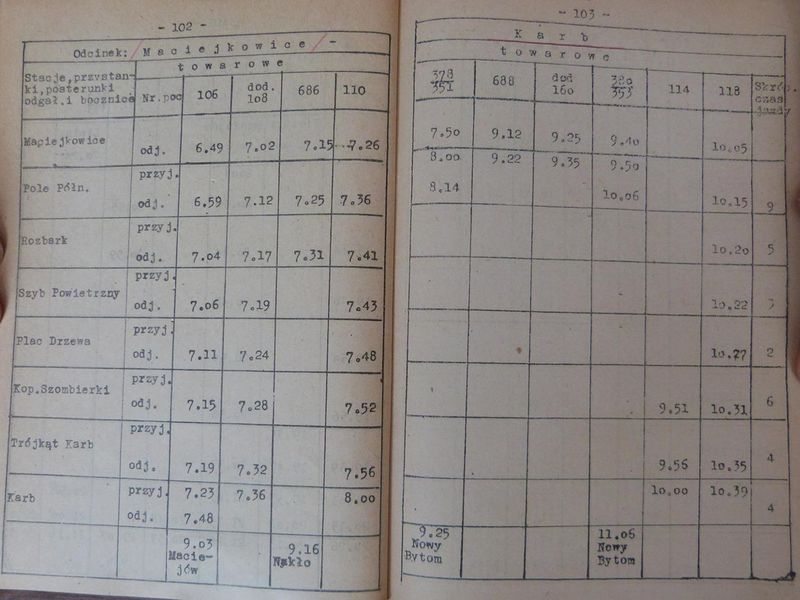 - 102 -
Odcinek: Maciejkowice/ -
Stacje,przystan-
ki,posterunki
odgał.i bocznice
Nr.poc
towarowe
106
dod.
108
686
110
Maciejkowice
odj. 6.49 7.02 7.15 7.26
przyj.
Pole Półn.
odj. 6.59 7.12 7.25 7.36
przyj.
Rozbark
odj. 7.04 7.17 7.31 7.41
przyj.
Szyb Powietrzny
odj. 7.06 7.19 7.43
przyj.
Plac Drzewa
odj. 7.11 7.24 7.48
przyj.
Kop.Szombierki
odj. 7.15 7.28 7.52
przyj.
Trójkąt Karb
odj. 7.19 7.32 7.56
Karb
przyj. 7.23 7.36 8.00
odj. 7.48
9.03
Macie-
jów
9.16
Nakło
- 103 -
Karb
towarowe
378
351
688
dod
160
380
353
114
118
Skróp.
czas
jazdy
7.50 9.12 9.25 9.40 10.05
8.00 9.22 9.35 9.50
8.14 10.06 10.15 9
10.20 5
10.22
10.27 2
9.51 10.31 6
9.56 10.35 4
10.00 10.39
4
9.25
Nowy
Bytom
11.06
Nowy
Bytom